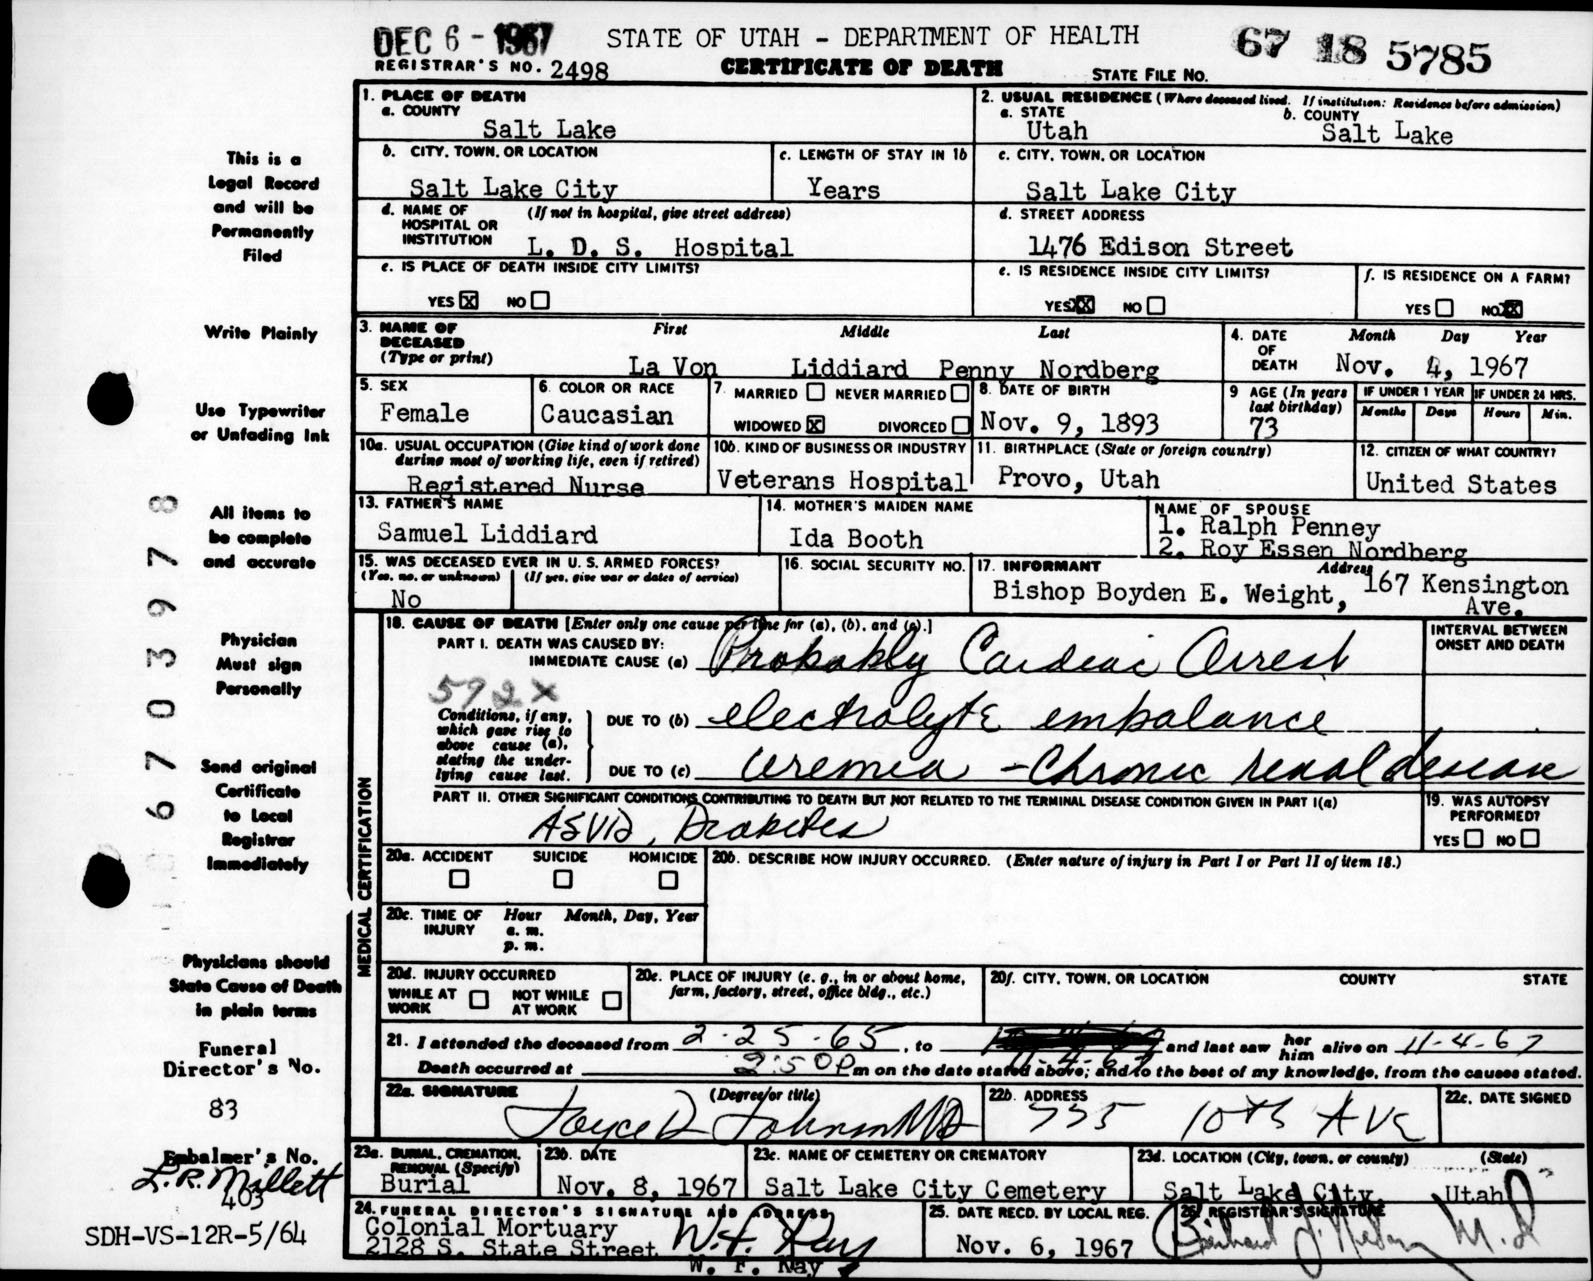 DEC 6 - 1967 STATE OF UTAH - DEPARTMENT OF HEALTH 67 18 5785
REGISTRAR'S NO. 2498 CERTIFICATE OF DEATH STATE FILE NO.
1. PLACE OF DEATH
a. COUNTY
Salt Lake
2. USUAL RESIDENCE (Where deceased lived. If institution: Residence before admission)
a. STATE b. COUNTY
Utah Salt Lake
b. CITY, TOWN, OR LOCATION
Salt Lake City
c. LENGTH OF STAY IN 1b
Years
c. CITY, TOWN, OR LOCATION
Salt Lake City
d. NAME OF (If not in hospital, give street address)
HOSPITAL OR
INSTITUTION L. D. S. Hospital
d. STREET ADDRESS
1476 Edison Street
e. IS PLACE OF DEATH INSIDE CITY LIMITS?
YES X NO
e. IS RESIDENCE INSIDE CITY LIMITS?
YES X NO
f. IS RESIDENCE ON A FARM?
YES NO X
3. NAME OF DECEASED First Middle Last
(Type or print) La Von Liddiard Penny Nordberg
4. DATE OF DEATH Month Day Year
Nov. 4, 1967
5. SEX
Female
6. COLOR OR RACE
Caucasian
7. MARRIED NEVER MARRIED
WIDOWED X DIVORCED
8. DATE OF BIRTH
Nov. 9, 1893
9 AGE (In years last birthday)
73
IF UNDER 1 YEAR IF UNDER 24 HRS.
Months Days Hours Min.
10a. USUAL OCCUPATION (Give kind of work done
during most of working life, even if retired)
Registered Nurse
10b. KIND OF BUSINESS OR INDUSTRY
Veterans Hospital
11. BIRTHPLACE (State or foreign country)
Provo, Utah
12. CITIZEN OF WHAT COUNTRY?
United States
13. FATHER'S NAME
Samuel Liddiard
14. MOTHER'S MAIDEN NAME
Ida Booth
NAME OF SPOUSE
1. Ralph Penney
2. Roy Essen Nordberg
15. WAS DECEASED EVER IN U. S. ARMED FORCES?
(Yes, no, or unknown) (If yes, give war or dates of service)
No
16. SOCIAL SECURITY NO.
17. INFORMANT Address
Bishop Boyden E. Weight, 167 Kensington
Ave.
18. CAUSE OF DEATH [Enter only one cause per line for (a), (b), and (c).]
PART I. DEATH WAS CAUSED BY:
IMMEDIATE CAUSE (a) Probably Cardiac Arrest
INTERVAL BETWEEN
ONSET AND DEATH
592X
Conditions, if any,
which gave rise to
above cause (a),
stating the under-
lying cause last.
DUE TO (b) electrolyte embalance
DUE TO (c) Uremia - Chronic renal disease
PART II. OTHER SIGNIFICANT CONDITIONS CONTRIBUTING TO DEATH BUT NOT RELATED TO THE TERMINAL DISEASE CONDITION GIVEN IN PART I(a)
ASVD, Diabetes
19. WAS AUTOPSY
PERFORMED?
YES NO
20a. ACCIDENT SUICIDE HOMICIDE
20b. DESCRIBE HOW INJURY OCCURRED. (Enter nature of injury in Part I or Part II of item 18.)
20c. TIME OF INJURY Hour Month, Day, Year
a. m.
p. m.
MEDICAL CERTIFICATION
20d. INJURY OCCURRED
WHILE AT WORK NOT WHILE AT WORK
20e. PLACE OF INJURY (e. g., in or about home,
farm, factory, street, office bldg., etc.)
20f. CITY, TOWN, OR LOCATION COUNTY STATE
21. I attended the deceased from 2-25-65, to 11-4-67 and last saw her him alive on 11-4-67
Death occurred at 2:50 P m on the date stated above; and to the best of my knowledge, from the causes stated.
22a. SIGNATURE (Degree or title)
Joyce D Johnson MD
22b. ADDRESS
735 10th AVE
22c. DATE SIGNED
23a. BURIAL, CREMATION,
REMOVAL (Specify)
Burial
23b. DATE
Nov. 8, 1967
23c. NAME OF CEMETERY OR CREMATORY
Salt Lake City Cemetery
23d. LOCATION (City, town, or county) (State)
Salt Lake City, Utah
24. FUNERAL DIRECTOR'S SIGNATURE AND ADDRESS
Colonial Mortuary
2128 S. State Street W. F. Kay
W. F. Kay
25. DATE RECD. BY LOCAL REG.
Nov. 6, 1967
26. REGISTRAR'S SIGNATURE
M.D
This is a
Legal Record
and will be
Permanently
Filed
Write Plainly
Use Typewriter
or Unfading Ink
All items to
be complete
and accurate
Physician
Must sign
Personally
Send original
Certificate
to Local
Registrar
Immediately
67 03978
Physicians should
State Cause of Death
in plain terms
Funeral
Director's No.
83
Embalmer's No.
L.R. Mallett
403
SDH-VS-12R-5/64